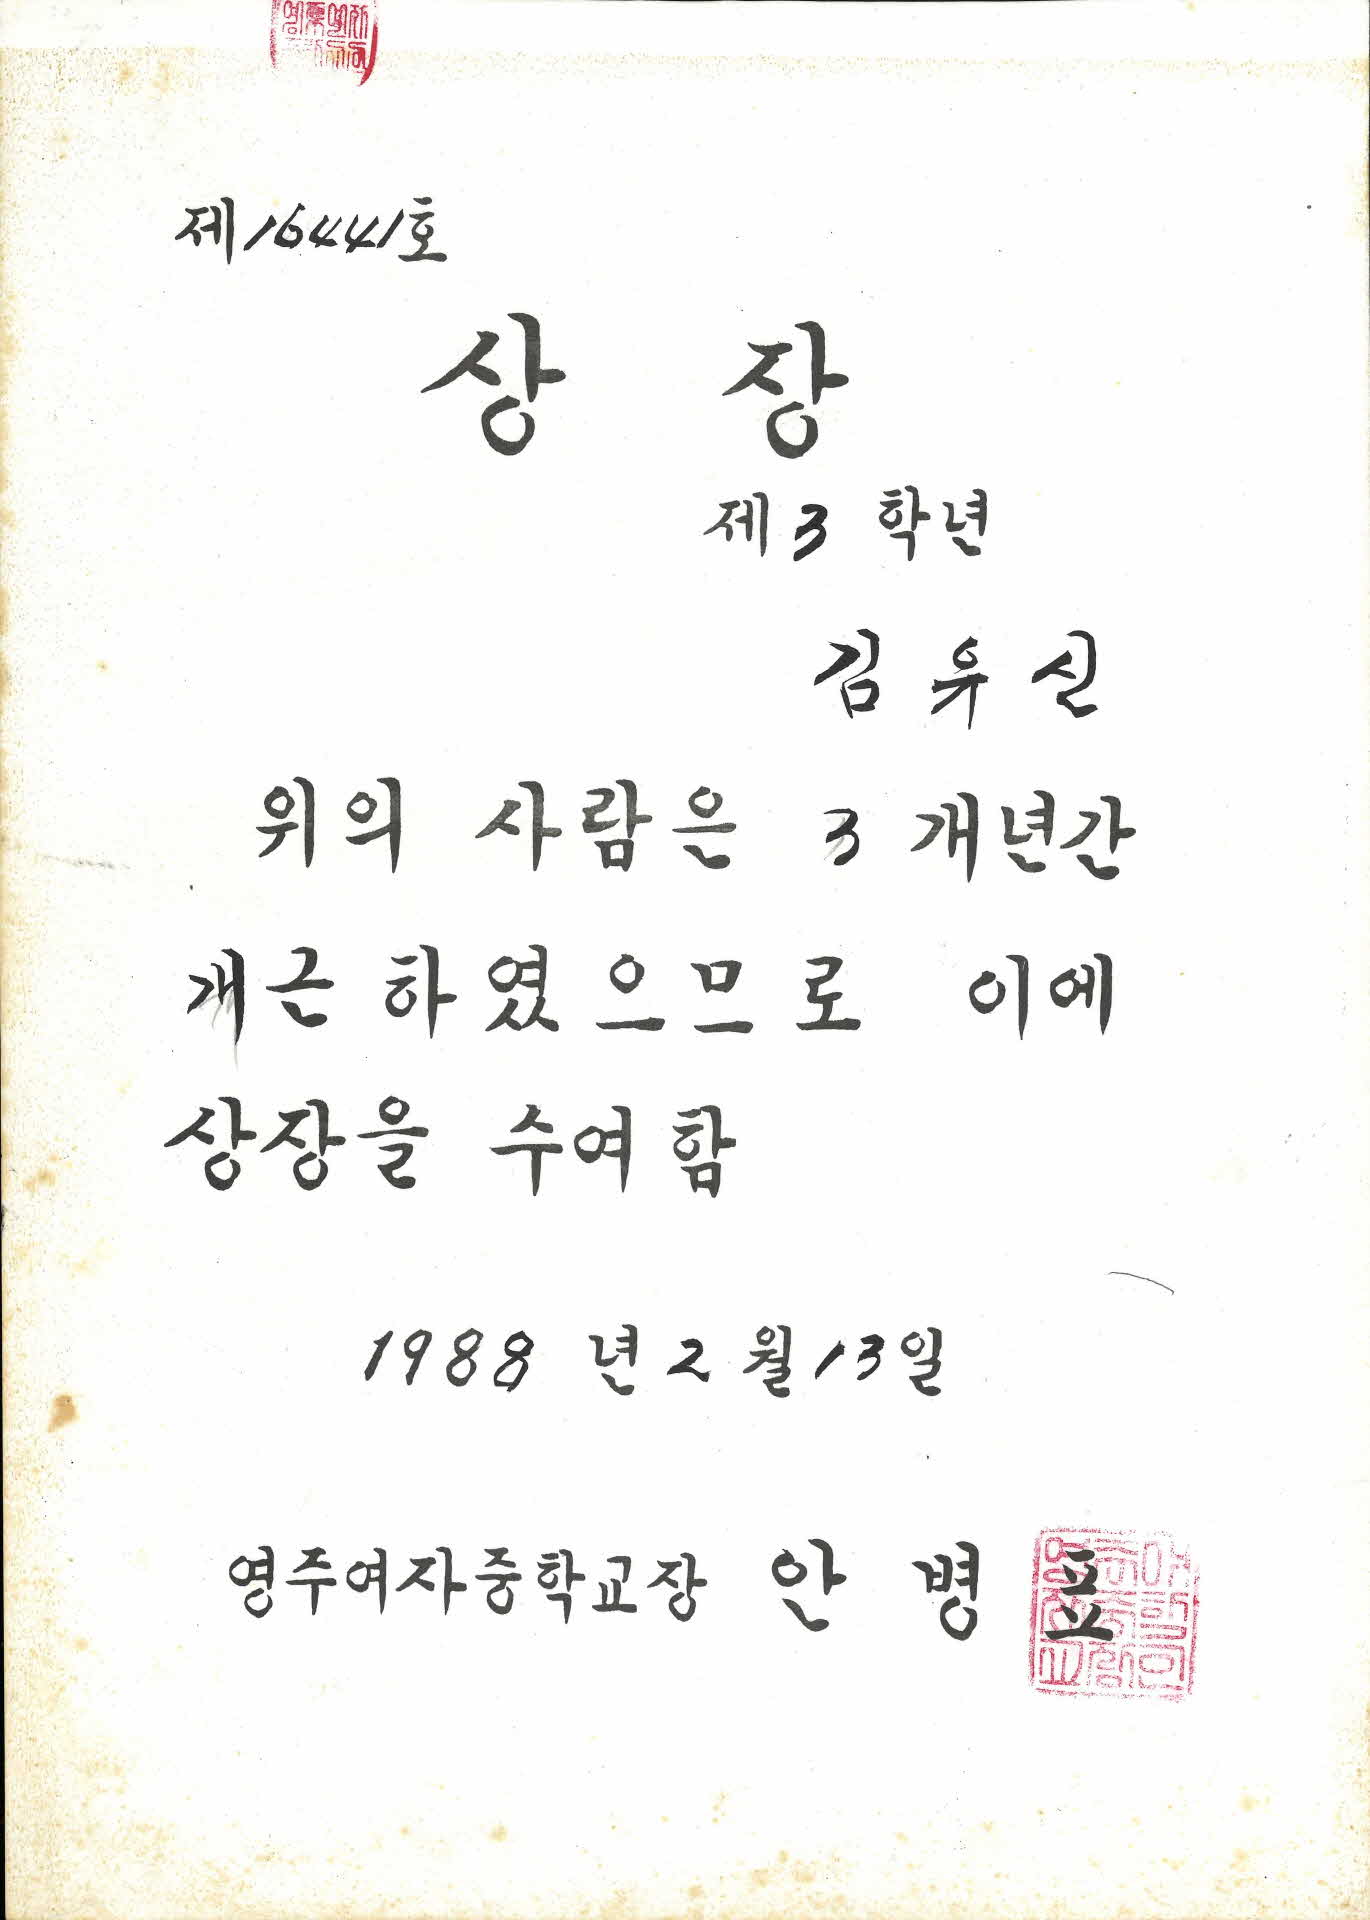 제16441호
상 장
제3 학년
김유신
위의 사람은 3 개년간
개근하였으므로 이에
상장을 수여함
1988 년 2 월 13일
영주여자중학교장 안 병 표